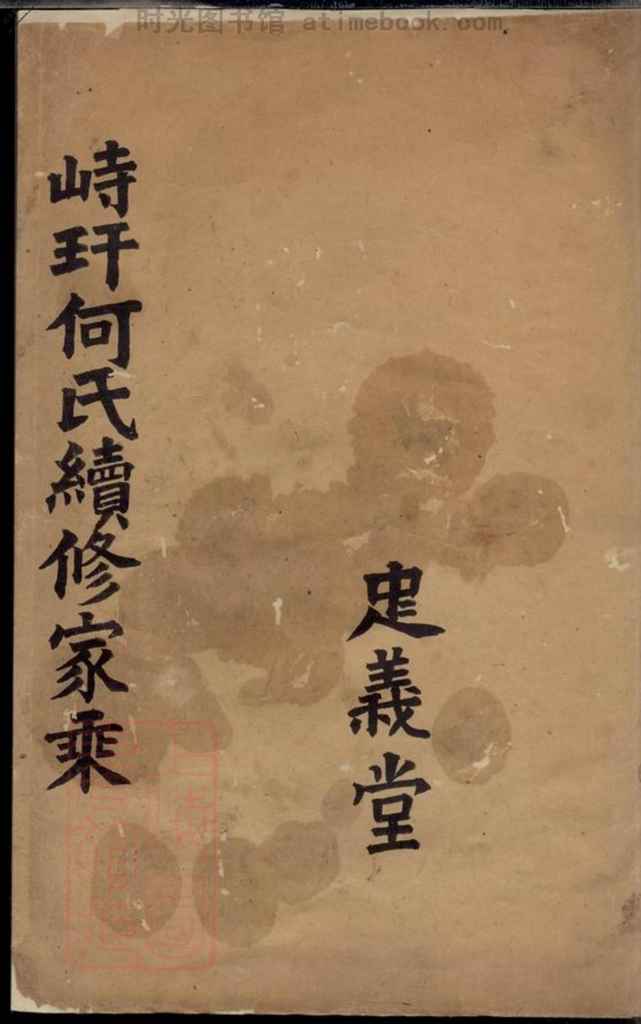 时光图书馆 atimebook.com
義堂
峙玕何氏續修家乘